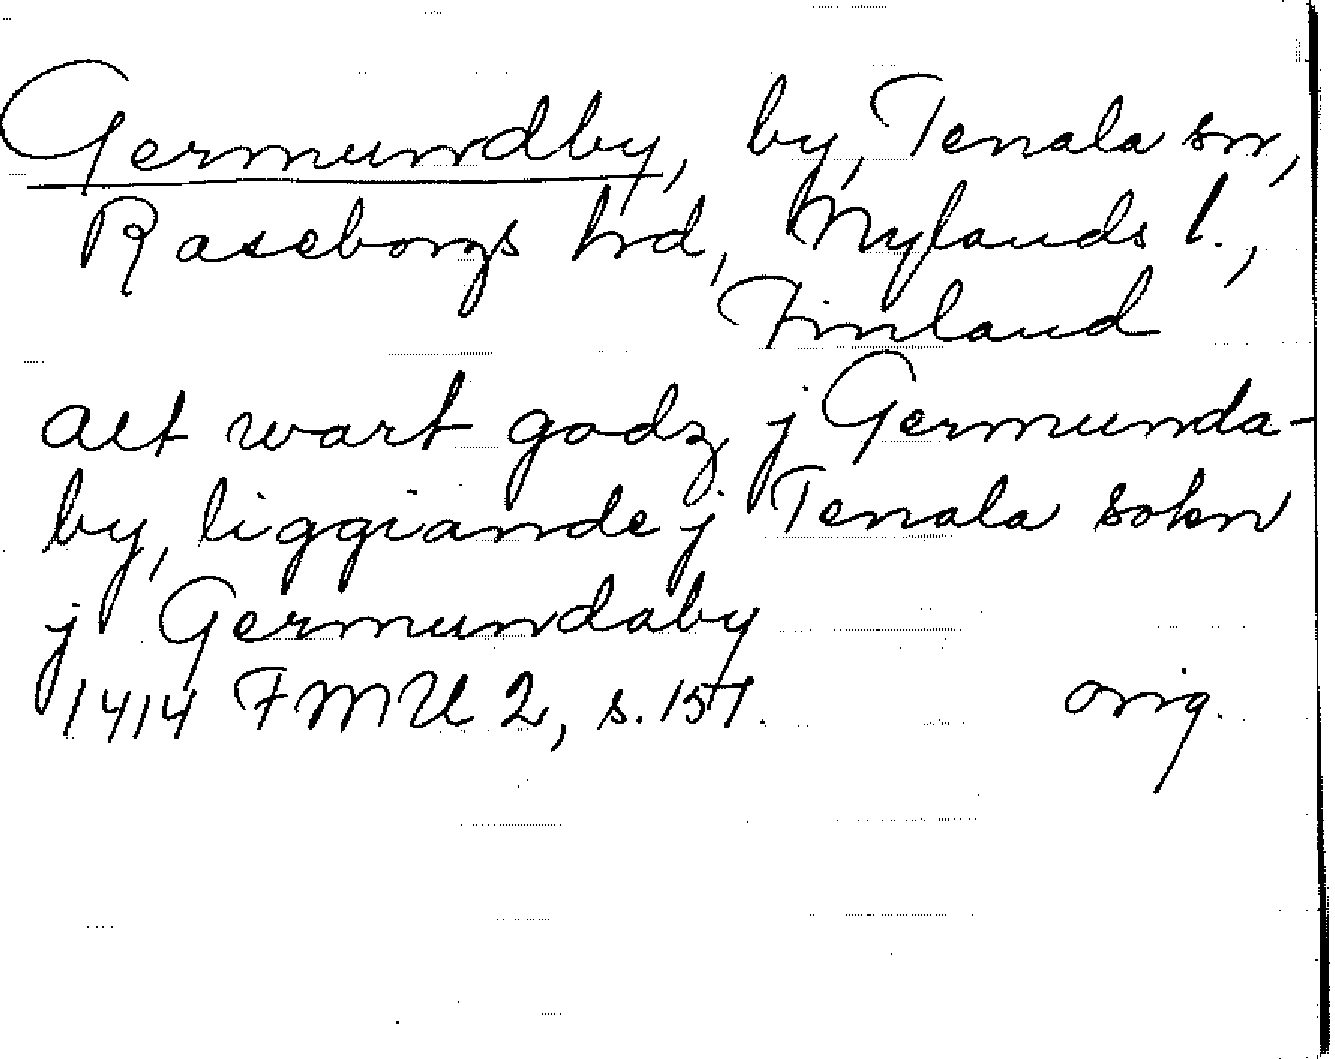 Germundby, by, Tenala sn,
Raseborgs hd, Nylands l.,
Finland
alt wart godz j Germunda-
by, liggiande j Tenala sokn
j Germundaby
1414 FMU 2, s. 157. orig.